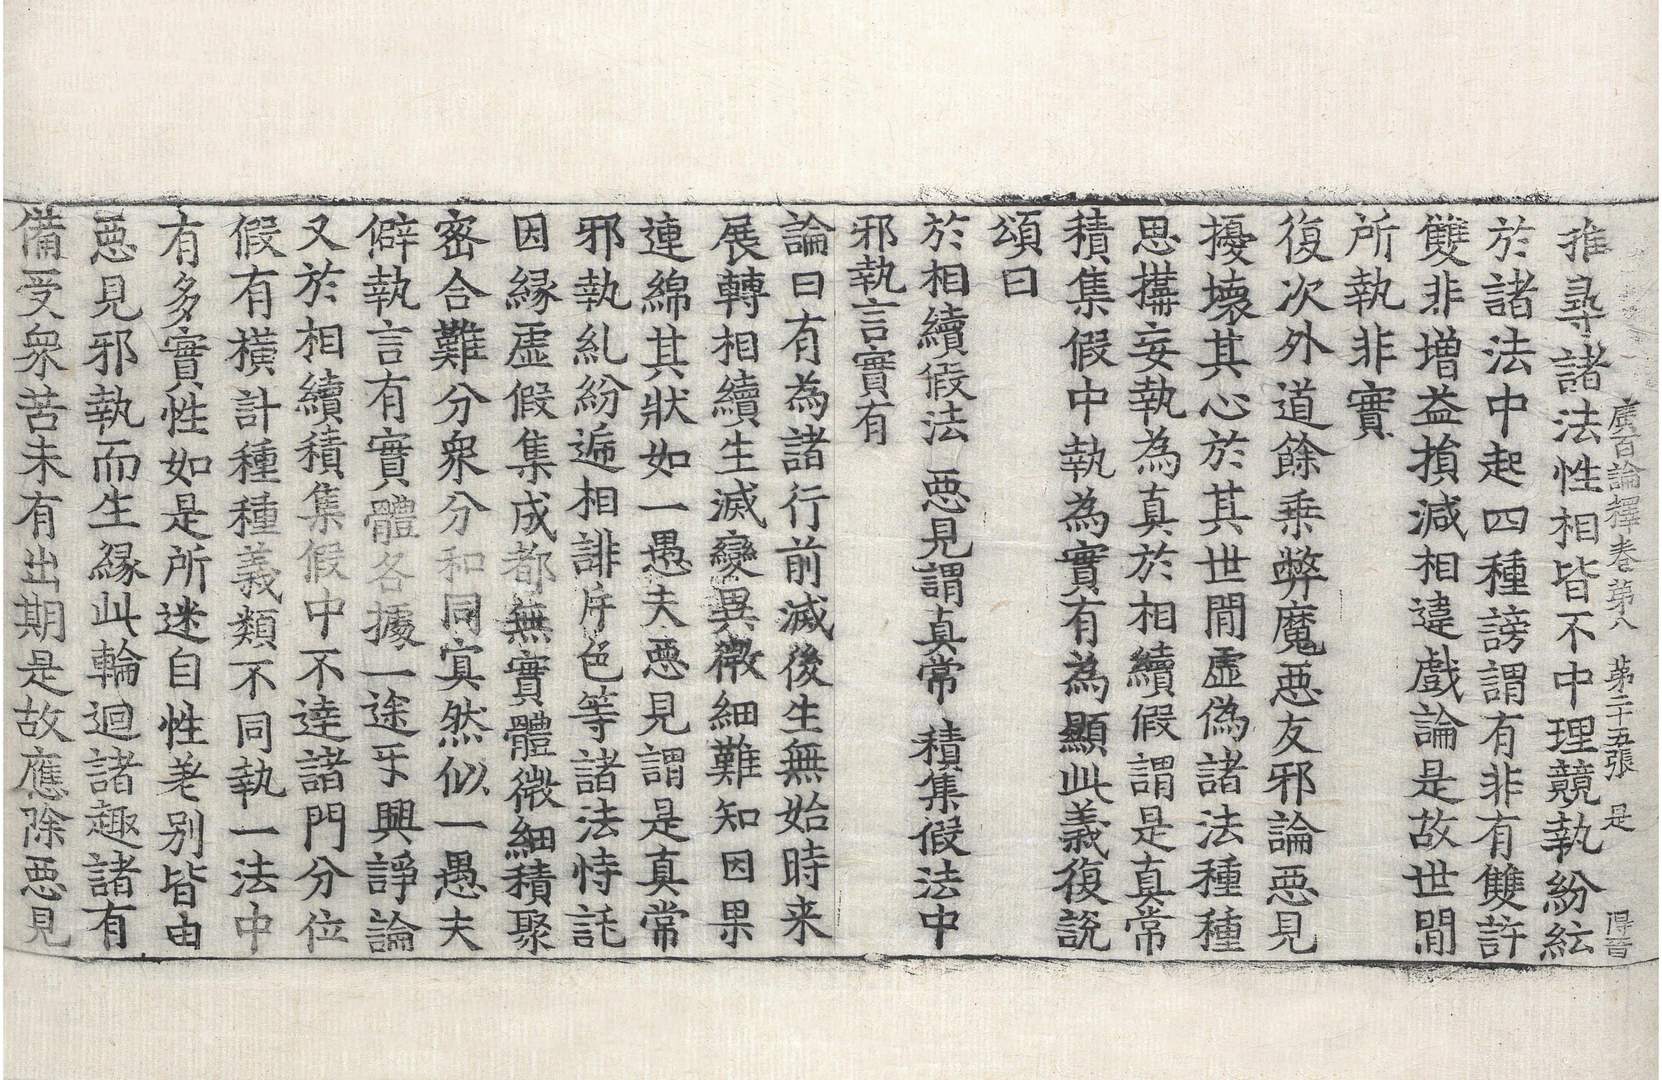 廣百論釋卷第八　第二十五張　是　得晉
推尋諸法性相皆不中理競執紛紜
於諸法中起四種謗謂有非有雙許
雙非增益損減相違戲論是故世間
所執非實
復次外道餘乘弊魔惡友邪論惡見
擾壞其心於其世間虛偽諸法種種
思搆妄執為真於相續假謂是真常
積集假中執為實有為顯此義復說
頌曰
於相續假法　惡見謂真常　積集假法中
邪執言實有
論曰有為諸行前滅後生無始時来
展轉相續生滅變異微細難知因果
連綿其狀如一愚夫惡見謂是真常
邪執糺紛遞相誹斥色等諸法恃託
因緣虛假集成都無實體微細積聚
密合難分衆分和同冥然似一愚夫
僻執言有實體各據一途㸦興諍論
又於相續積集假中不達諸門分位
假有橫計種種義類不同執一法中
有多實性如是所迷自性差別皆由
惡見邪執而生緣此輪迴諸趣諸有
備受衆苦未有出期是故應除惡見